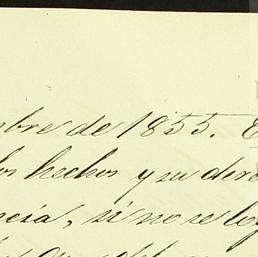 mbre de 1855. E
los hechos y su dere
ncia, si no se lo